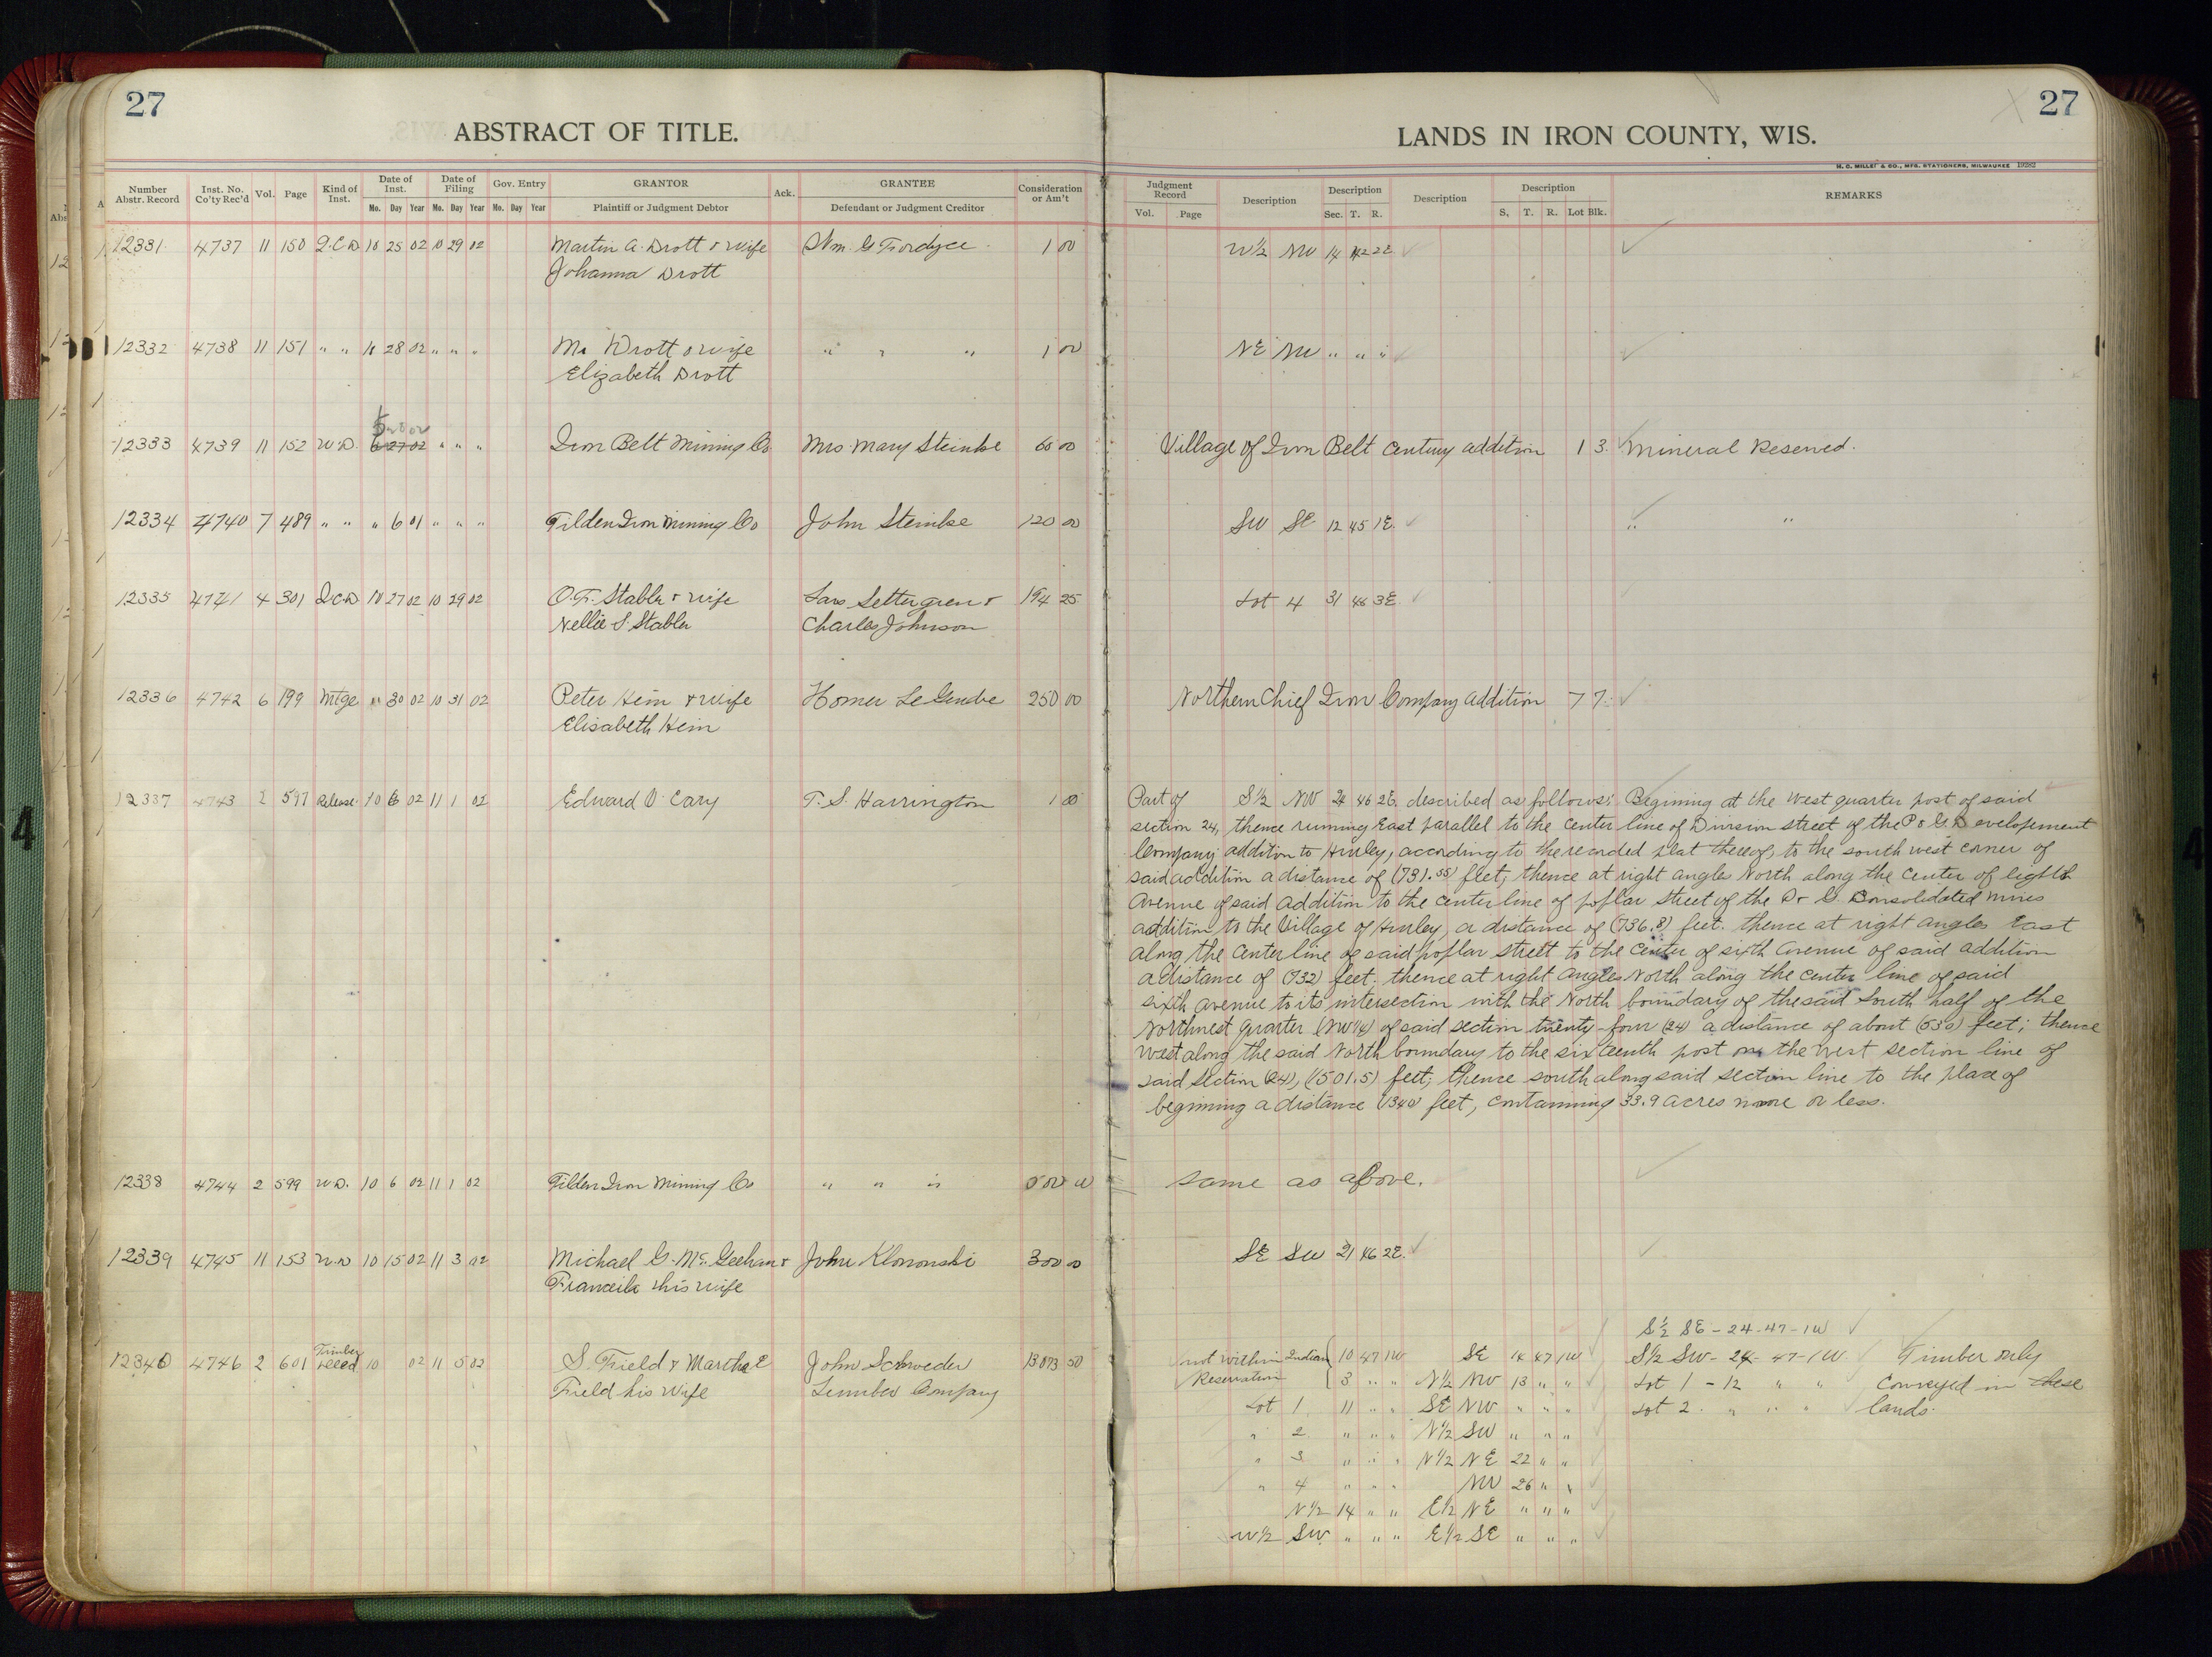 27
ABSTRACT OF TITLE.
Number Abstr. Record Inst. No. Co'ty Rec'd Vol. Page Kind of Inst. Date of Inst. Mo. Day Year Date of Filing Mo. Day Year Gov. Entry Mo. Day Year GRANTOR Plaintiff or Judgment Debtor Ack. GRANTEE Defendant or Judgment Creditor Consideration or Am't
12331 4737 11 150 Q.C.D 10 25 02 10 29 02 Martin A. Drott & wife Wm. G Fordyce 1 00
Johanna Drott
12332 4738 11 151 " " 10 28 02 " " " Drott & wife " " " 1 00
Elizabeth Drott
12333 4739 11 152 W.D. 6 27 02 " " " Iron Belt Mining Co Mrs. Mary Steinke 60 00
12334 4740 7 489 " " " 6 01 " " " Tilden Iron Mining Co John Steinke 120 00
12335 4741 4 301 Q.C.D 10 27 02 10 29 02 O.F. Stabler & wife Lars Settergren & 194 25
Nellie S Stabler Charles Johnson
12336 4742 6 199 Mtge " 30 02 10 31 02 Peter Hein & wife Homer LeGendre 250 00
Elisabeth Hein
12337 4743 2 597 Release 10 6 02 11 1 02 Edward O. Cary T. S. Harrington 1 00
12338 4744 2 599 W.D. 10 6 02 11 1 02 Tilden Iron Mining Co " " "
12339 4745 11 153 W.D 10 15 02 11 3 02 Michael G. McGeehan & John Klononski 300 00
his wife
12340 4746 2 601 Timber Deed 10 02 11 5 02 S. Field & Martha E John Schroeder 13073 50
Field his wife Lumber Company
27
LANDS IN IRON COUNTY, WIS.
H. C. MILLER & CO., MFG. STATIONERS, MILWAUKEE 19282
Judgment Record Vol. Page Description Description Sec. T. R. Description Description S. T. R. Lot Blk. REMARKS
W½ NW 14 42 2E
NE NW " " "
Village of Iron Belt Century addition 1 3. Mineral Reserved.
SW SE 12 45 1E. " "
Lot 4 31 46 3E.
Northern Chief Iron Company addition 7 7.
Part of S½ NW 24 46 2E. described as follows; Begining at the West quarter post of said
section 24, thence running East parallel to the center line of Division street of the P & G. Developement
Company addition to Hurley, according to the recorded plat thereof, to the south west corner of
said addition a distance of (731.55) feet; thence at right angles North along the center of eighth
Avenue of said addition to the center line of poplar street of the P & G. Consolidated mines
addition to the Village of Hurley, a distance of (736.8) feet. thence at right angles East
along the center line of said poplar street to the center of sixth avenue of said addition
a distance of (732) feet. thence at right angles North along the center line of said
sixth avenue to its intersection with the North boundary of the said South half of the
Northwest quarter (NW¼) of said section twenty-four (24) a distance of about (530) feet; thence
West along the said North boundary to the sixteenth post on the West section line of
said section (24), (1501.5) feet; thence south along said section line to the place of
beginning a distance (1340) feet, containing 33.9 acres more or less.
same as above.
SE SW 21 46 2E.
S½ SE - 24 - 47 - 1W
not within Indian 10 47 1W SE 14 47 1W S½ SW - 24 - 47 - 1W Timber only
Reservation 3 " " N½ NW 13 " " Lot 1 - 12 " " conveyed in these
Lot 1 11 " " SE NW " " " Lot 2 " " " lands.
" 2 " " " N½ SW " " "
" 3 " " " N½ NE 22 " "
" 4 " " " NW 26 " "
N½ 14 " " E½ NE " " "
W½ SW " " " E½ SE " " "